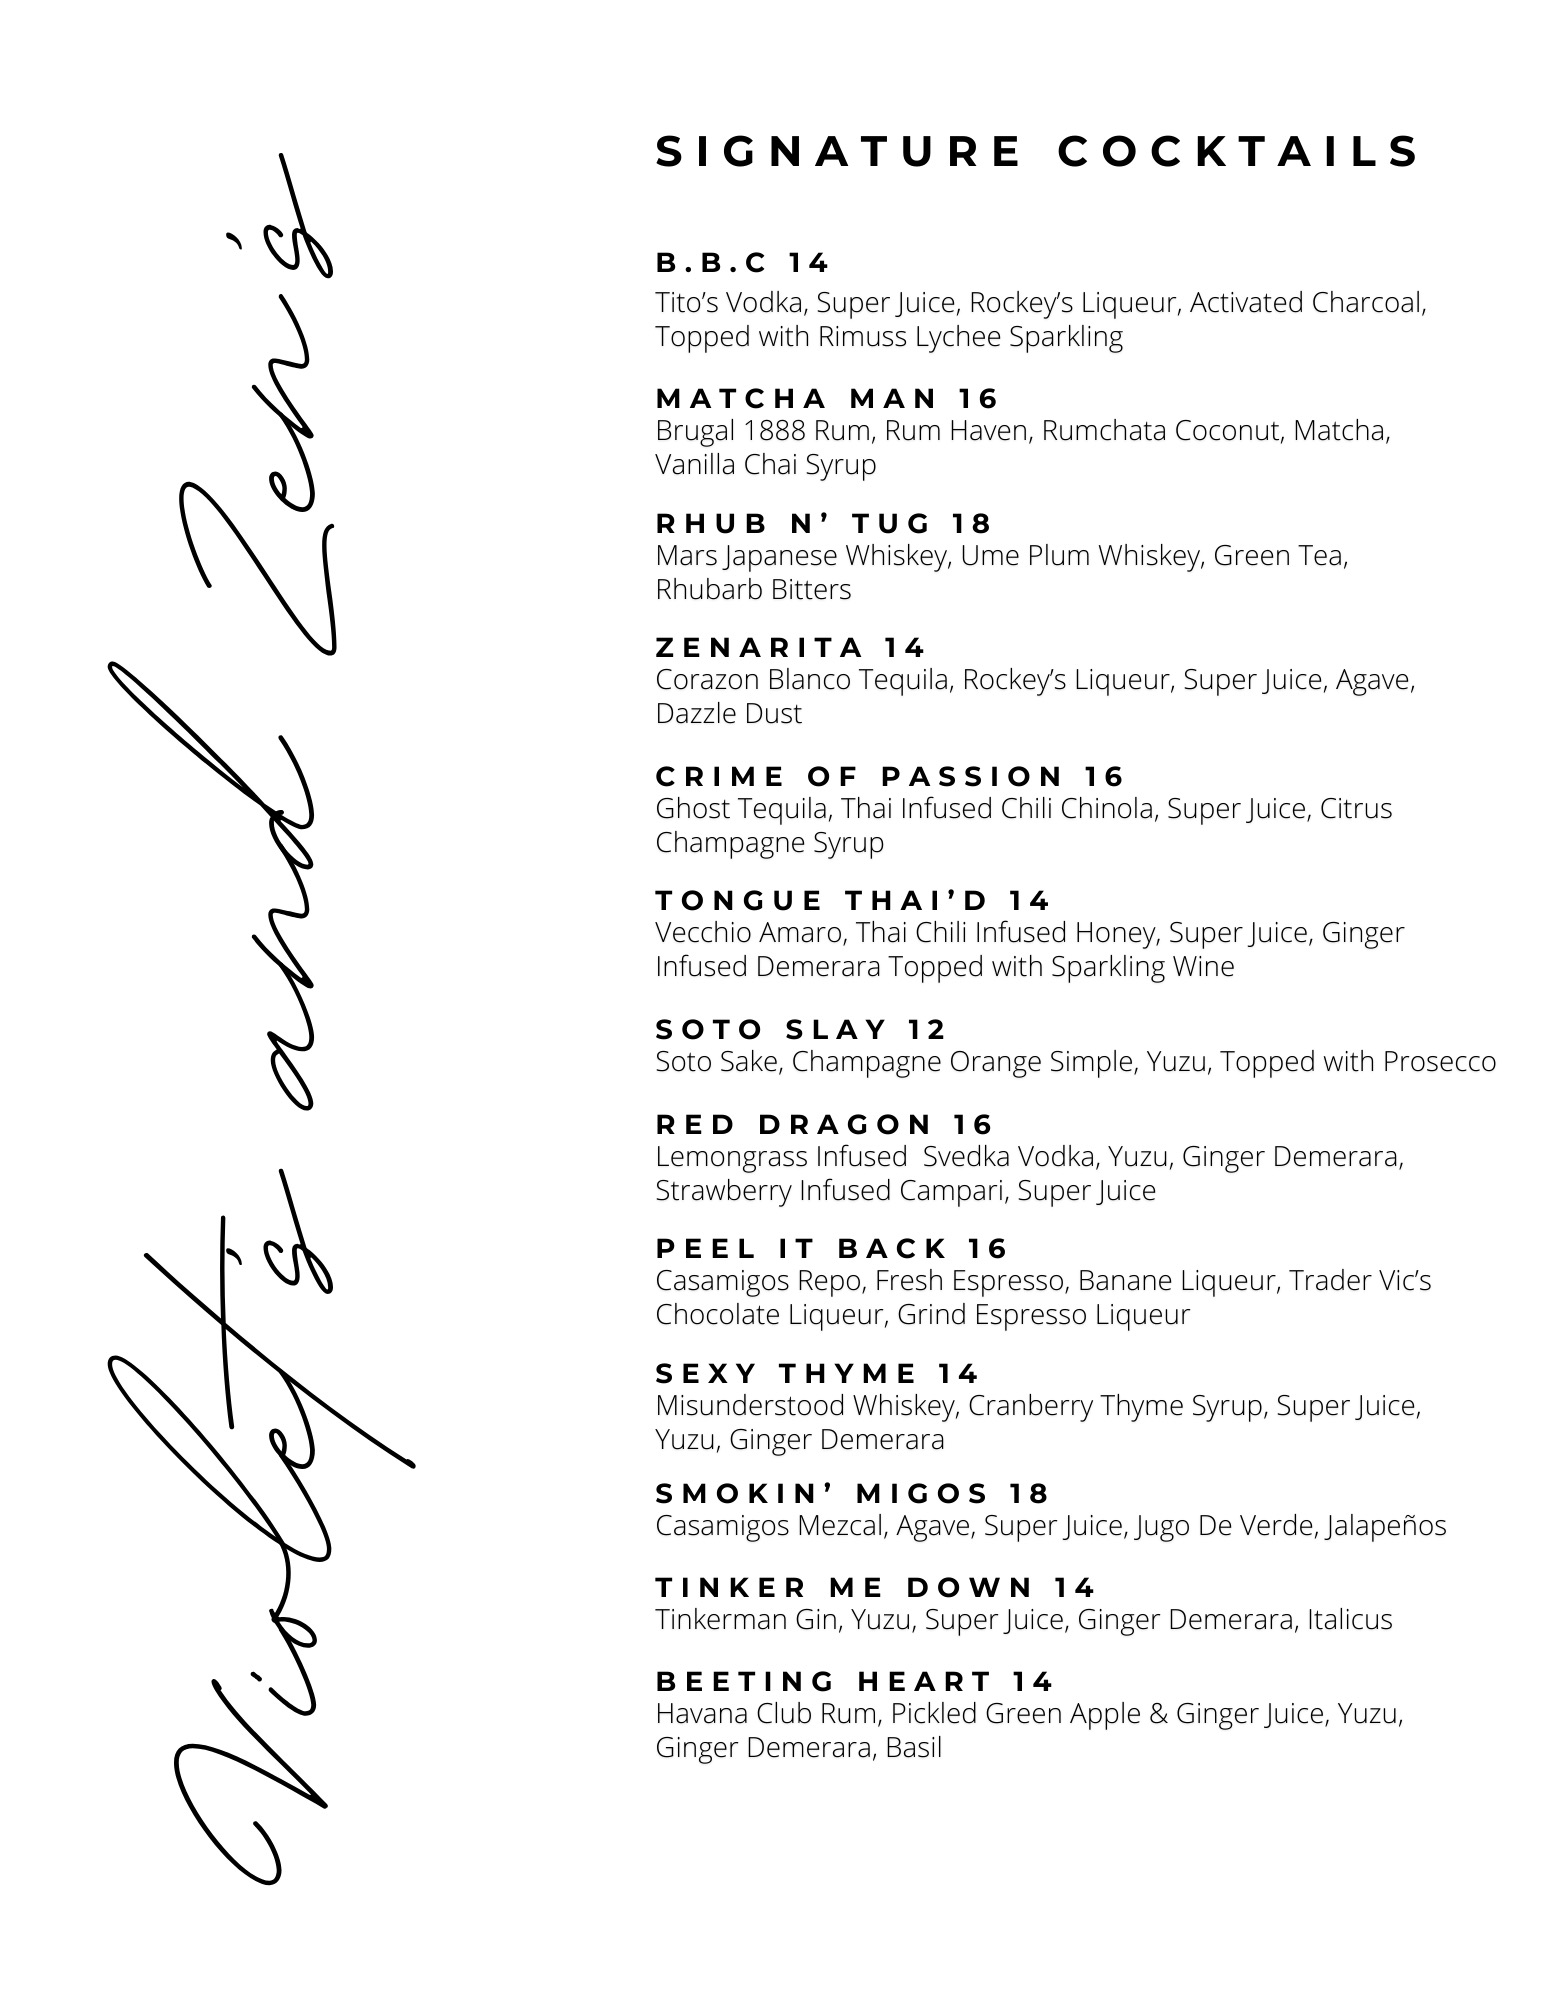 Violet's and Zen's
SIGNATURE COCKTAILS
B.B.C 14
Tito’s Vodka, Super Juice, Rockey’s Liqueur, Activated Charcoal,
Topped with Rimuss Lychee Sparkling
MATCHA MAN 16
Brugal 1888 Rum, Rum Haven, Rumchata Coconut, Matcha,
Vanilla Chai Syrup
RHUB N’ TUG 18
Mars Japanese Whiskey, Ume Plum Whiskey, Green Tea,
Rhubarb Bitters
ZENARITA 14
Corazon Blanco Tequila, Rockey’s Liqueur, Super Juice, Agave,
Dazzle Dust
CRIME OF PASSION 16
Ghost Tequila, Thai Infused Chili Chinola, Super Juice, Citrus
Champagne Syrup
TONGUE THAI’D 14
Vecchio Amaro, Thai Chili Infused Honey, Super Juice, Ginger
Infused Demerara Topped with Sparkling Wine
SOTO SLAY 12
Soto Sake, Champagne Orange Simple, Yuzu, Topped with Prosecco
RED DRAGON 16
Lemongrass Infused  Svedka Vodka, Yuzu, Ginger Demerara,
Strawberry Infused Campari, Super Juice
PEEL IT BACK 16
Casamigos Repo, Fresh Espresso, Banane Liqueur, Trader Vic’s
Chocolate Liqueur, Grind Espresso Liqueur
SEXY THYME 14
Misunderstood Whiskey, Cranberry Thyme Syrup, Super Juice,
Yuzu, Ginger Demerara
SMOKIN’ MIGOS 18
Casamigos Mezcal, Agave, Super Juice, Jugo De Verde, Jalapeños
TINKER ME DOWN 14
Tinkerman Gin, Yuzu, Super Juice, Ginger Demerara, Italicus
BEETING HEART 14
Havana Club Rum, Pickled Green Apple & Ginger Juice, Yuzu,
Ginger Demerara, Basil